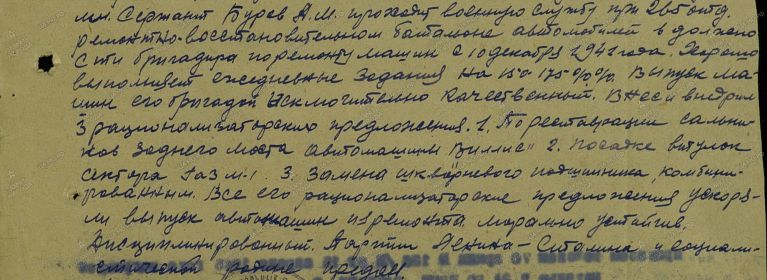 Сержант Буров А.М. проходит военную службу при 2вб отд.
ремонтно-восстановительном батальоне автомобилей в должно
сти бригадира по ремонту машин с 10 декабря 1941 года. Хорошо
выполняет ежедневные задания на 150-175%%. Выпуск ма-
шин его бригадой исключительно качественный. Внес и внедрил
3 рационализаторских предложения. 1. По реставрации сальни-
ков заднего моста автомашины Виллис" 2. посадке втулок
сектора Газ М-1. 3. Замена шкворневого подшипника, комбини-
рованным. Все его рационализаторские предложения ускори-
ли выпуск автомашин из ремонта. морально устойчив.
Дисциплинированный. Партии Ленина-Сталина и социали-
стической родине предан